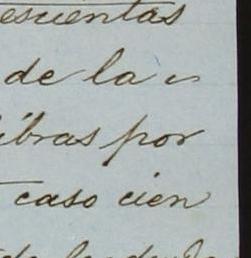 escientas
de la
libras por
caso cien